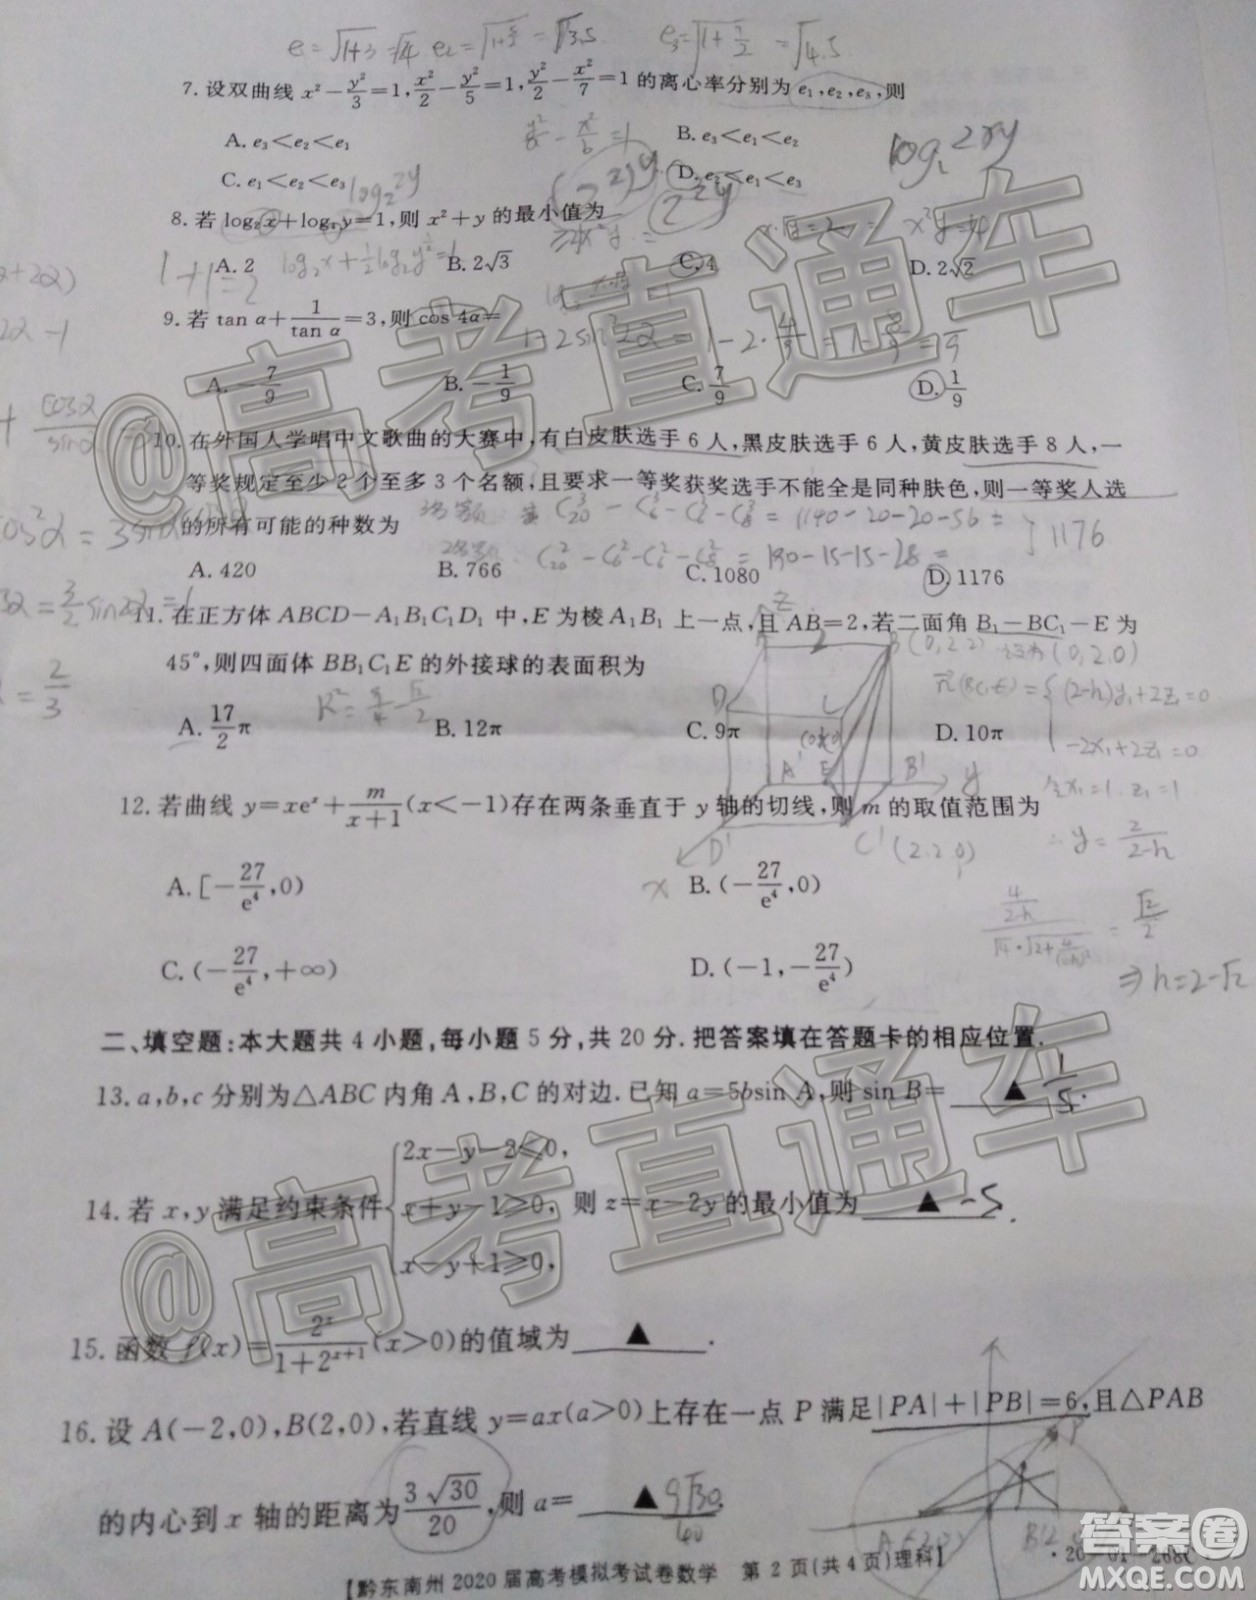 e₁=√1+3=√4 e₂=√1+5/2=√3.5 e₃=√1+7/2=√4.5
7. 设双曲线 x²−y²/3=1, x²/2−y²/5=1, y²/2−x²/7=1 的离心率分别为 e₁,e₂,e₃,则
A. e₃<e₂<e₁ B. e₃<e₁<e₂
C. e₁<e₂<e₃ D. e₂<e₁<e₃
8. 若 log₂x+log₄y=1,则 x²+y 的最小值为
A. 2 B. 2√3 C. 4 D. 2√2
9. 若 tan α+1/tan α=3,则 cos 4α=
1−2sin²2α=1−2·4/9=1−8/9=1/9
A. −7/9 B. −1/9 C. 7/9 D. 1/9
10. 在外国人学唱中文歌曲的大赛中,有白皮肤选手 6 人,黑皮肤选手 6 人,黄皮肤选手 8 人,一
等奖规定至少 2 个至多 3 个名额,且要求一等奖获奖选手不能全是同种肤色,则一等奖人选
的所有可能的种数为
C³₂₀−C³₆−C³₆−C³₈=1140−20−20−56=
C²₂₀−C²₆−C²₆−C²₈=190−15−15−28= } 1176
A. 420 B. 766 C. 1080 D. 1176
11. 在正方体 ABCD−A₁B₁C₁D₁ 中,E 为棱 A₁B₁ 上一点,且 AB=2,若二面角 B₁−BC₁−E 为
45°,则四面体 BB₁C₁E 的外接球的表面积为
A. 17/2 π B. 12π C. 9π D. 10π
12. 若曲线 y=xeˣ+m/(x+1)(x<−1)存在两条垂直于 y 轴的切线,则 m 的取值范围为
A. [−27/e⁴,0) B. (−27/e⁴,0)
C. (−27/e⁴,+∞) D. (−1,−27/e⁴)
⇒h=2−√2
二、填空题:本大题共 4 小题,每小题 5 分,共 20 分.把答案填在答题卡的相应位置.
13. a,b,c 分别为△ABC 内角 A,B,C 的对边.已知 a=5bsin A,则 sin B= ▲ 1/5
14. 若 x,y 满足约束条件 { 2x−y−2≤0, x+y−1≥0, x−y+1≥0, 则 z=x−2y 的最小值为 ▲ −5.
15. 函数 f(x)=2ˣ/(1+2ˣ⁺¹)(x>0)的值域为 ▲ .
16. 设 A(−2,0),B(2,0),若直线 y=ax(a>0)上存在一点 P 满足|PA|+|PB|=6,且△PAB
的内心到 x 轴的距离为3√30/20,则 a= ▲ 9√30/40
【黔东南州 2020 届高考模拟考试卷数学 第 2 页(共 4 页)理科】 ·20−01−268C·
@高考直通车
@高考直通车
答案圈
MXQE.COM